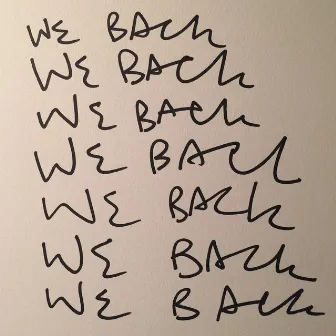 WE BACK
WE BACK
WE BACK
WE BACK
WE BACK
WE BACK
WE BACK